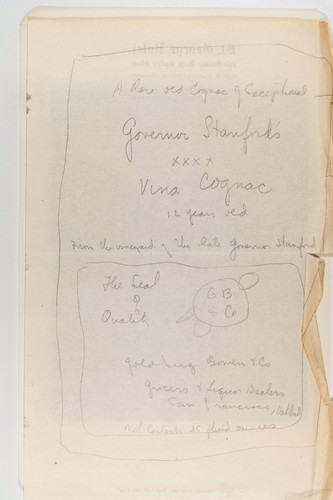 St. George Hotel
A Rare old Cognac of Exceptional
Governor Stanford's
xxxx
Vina Cognac
12 years old
From the vineyard of the late Governor Stanford
The Seal
of
Quality
G B
& Co
Goldberg Bowen & Co
Grocers & Liquor Dealers
San Francisco,
Net Contents 25 fluid ounces